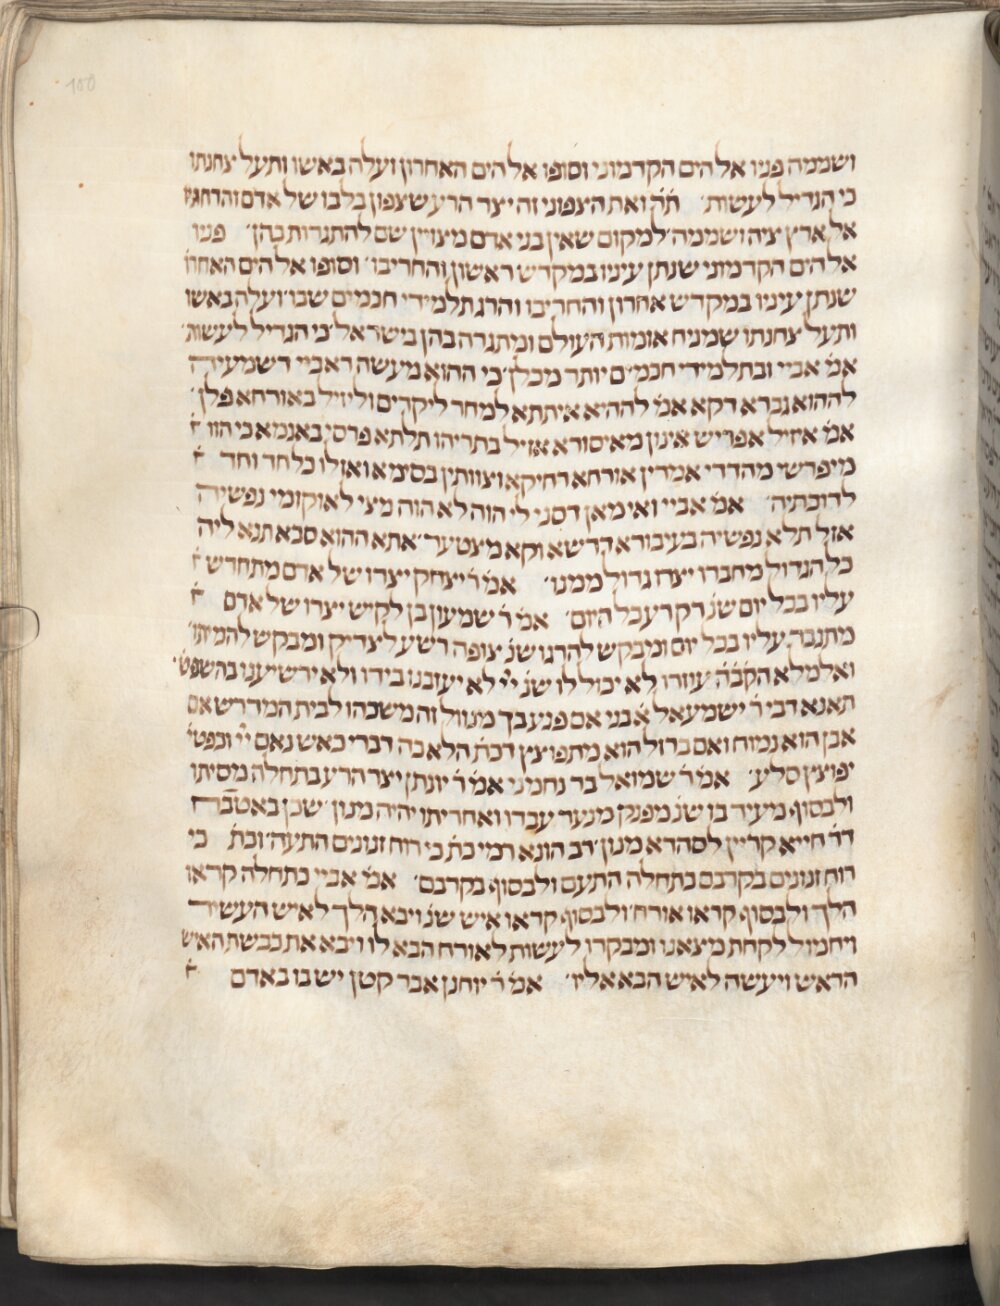 150
ושממה פניו אל הים הקדמוני וסופו אל הים האחרון ועלה באשו ותעל צחנתו
כי הגדיל לעשות׳ תׄרׄ ואת הצפוני זה יצר הרע שצפון בלבו של אדם והדחתיו
אל ארץ ציה ושממה׳ למקום שאין בני אדם מצויין שם להתגרות בהן׳ פניו
אל הים הקדמוני שנתן עיניו במקדש ראשון והחריבו׳ וסופו אל הים האחרו
שנתן עיניו במקדש אחרון והחריבו והרג תלמידי חכמים שבו׳ ועלה באשו
ותעל צחנתו שמניח אומות העולם ומתגרה בהן בישראל׳ כי הגדיל לעשות׳
אמׄ אביי ובתלמידי חכמ׳ם יותר מכלן׳ כי ההוא מעשה דאביי דשמעיה
לההוא גברא דקא אמׄ לההיא איתתא למחר ליקדים וליזיל באורחא פלן׳
אמׄ איזיל אפריש אינון מאיסורא אזיל בתריהו תלתא פרסי באגמא כי הוו
מיפרשי מהדדי אמרין אורחא רחיקא וצוותין בסימא ואזלו כל חד וחד
לדוכתיה׳ אמׄ אביי ואי מאן דסני לי הוה לא הוה מצי לאוקומי נפשיה
אזל תלא נפשיה בעיבורא דדשא וקא מצטער׳ אתא ההוא סבא תנא ליה
כל הגדול מחברו יצרו גדול ממנו׳ אמׄ רׄ יצחק יצרו של אדם מתחדש
עליו בכל יום שנׄ רק רע כל היום׳ אמׄ רׄ שמעון בן לקיש יצרו של אדם
מתגבר עליו בכל יום ומבקש להרגו שנׄ צופה רשע לצדיק ומבקש להמיתו׳
ואלמלא הקׄבׄהׄ עוזרו לא יכול לו שנׄ ייׄ לא יעזבנו בידו ולא ירשיענו בהשפטׄ׳
תאנא דבי רׄ ישמעאל אׄ בני אם פגע בך מנוול זה משכהו לבית המדרש אם
אבן הוא נמוח ואם ברזל הוא מתפוצץ דכתׄ הלא כה דברי כאש נאם ייׄ וכפטיׄ
יפוצץ סלע׳ אמׄ רׄ שמואל בר נחמני אמׄ רׄ יונתן יצר הרע בתחלה מסיתו
ולבסוף מעיד בו שנׄ מפנק מנער עבדו ואחריתו יהיה מנון׳ שכן באטׄבׄחׄ
דרׄ חייא קריין לסהדא מנון׳ רב הונא רמי כתׄ כי רוח זנונים התעה׳ וכתׄ כי
רוח זנונים בקרבם בתחלה התעם ולבסוף בקרבם׳ אמׄ אביי בתחלה קראו
הלך ולבסוף קראו אורח׳ ולבסוף קראו איש שנׄ ויבא הלך לאיש העשיר
ויחמול לקחת מצאנו ומבקרו לעשות לאורח הבא לו ויבא את כבשת האיש
הראש ויעשה לאיש הבא אליו׳ אמׄ רׄ יוחנן אבר קטן יש בו באדם